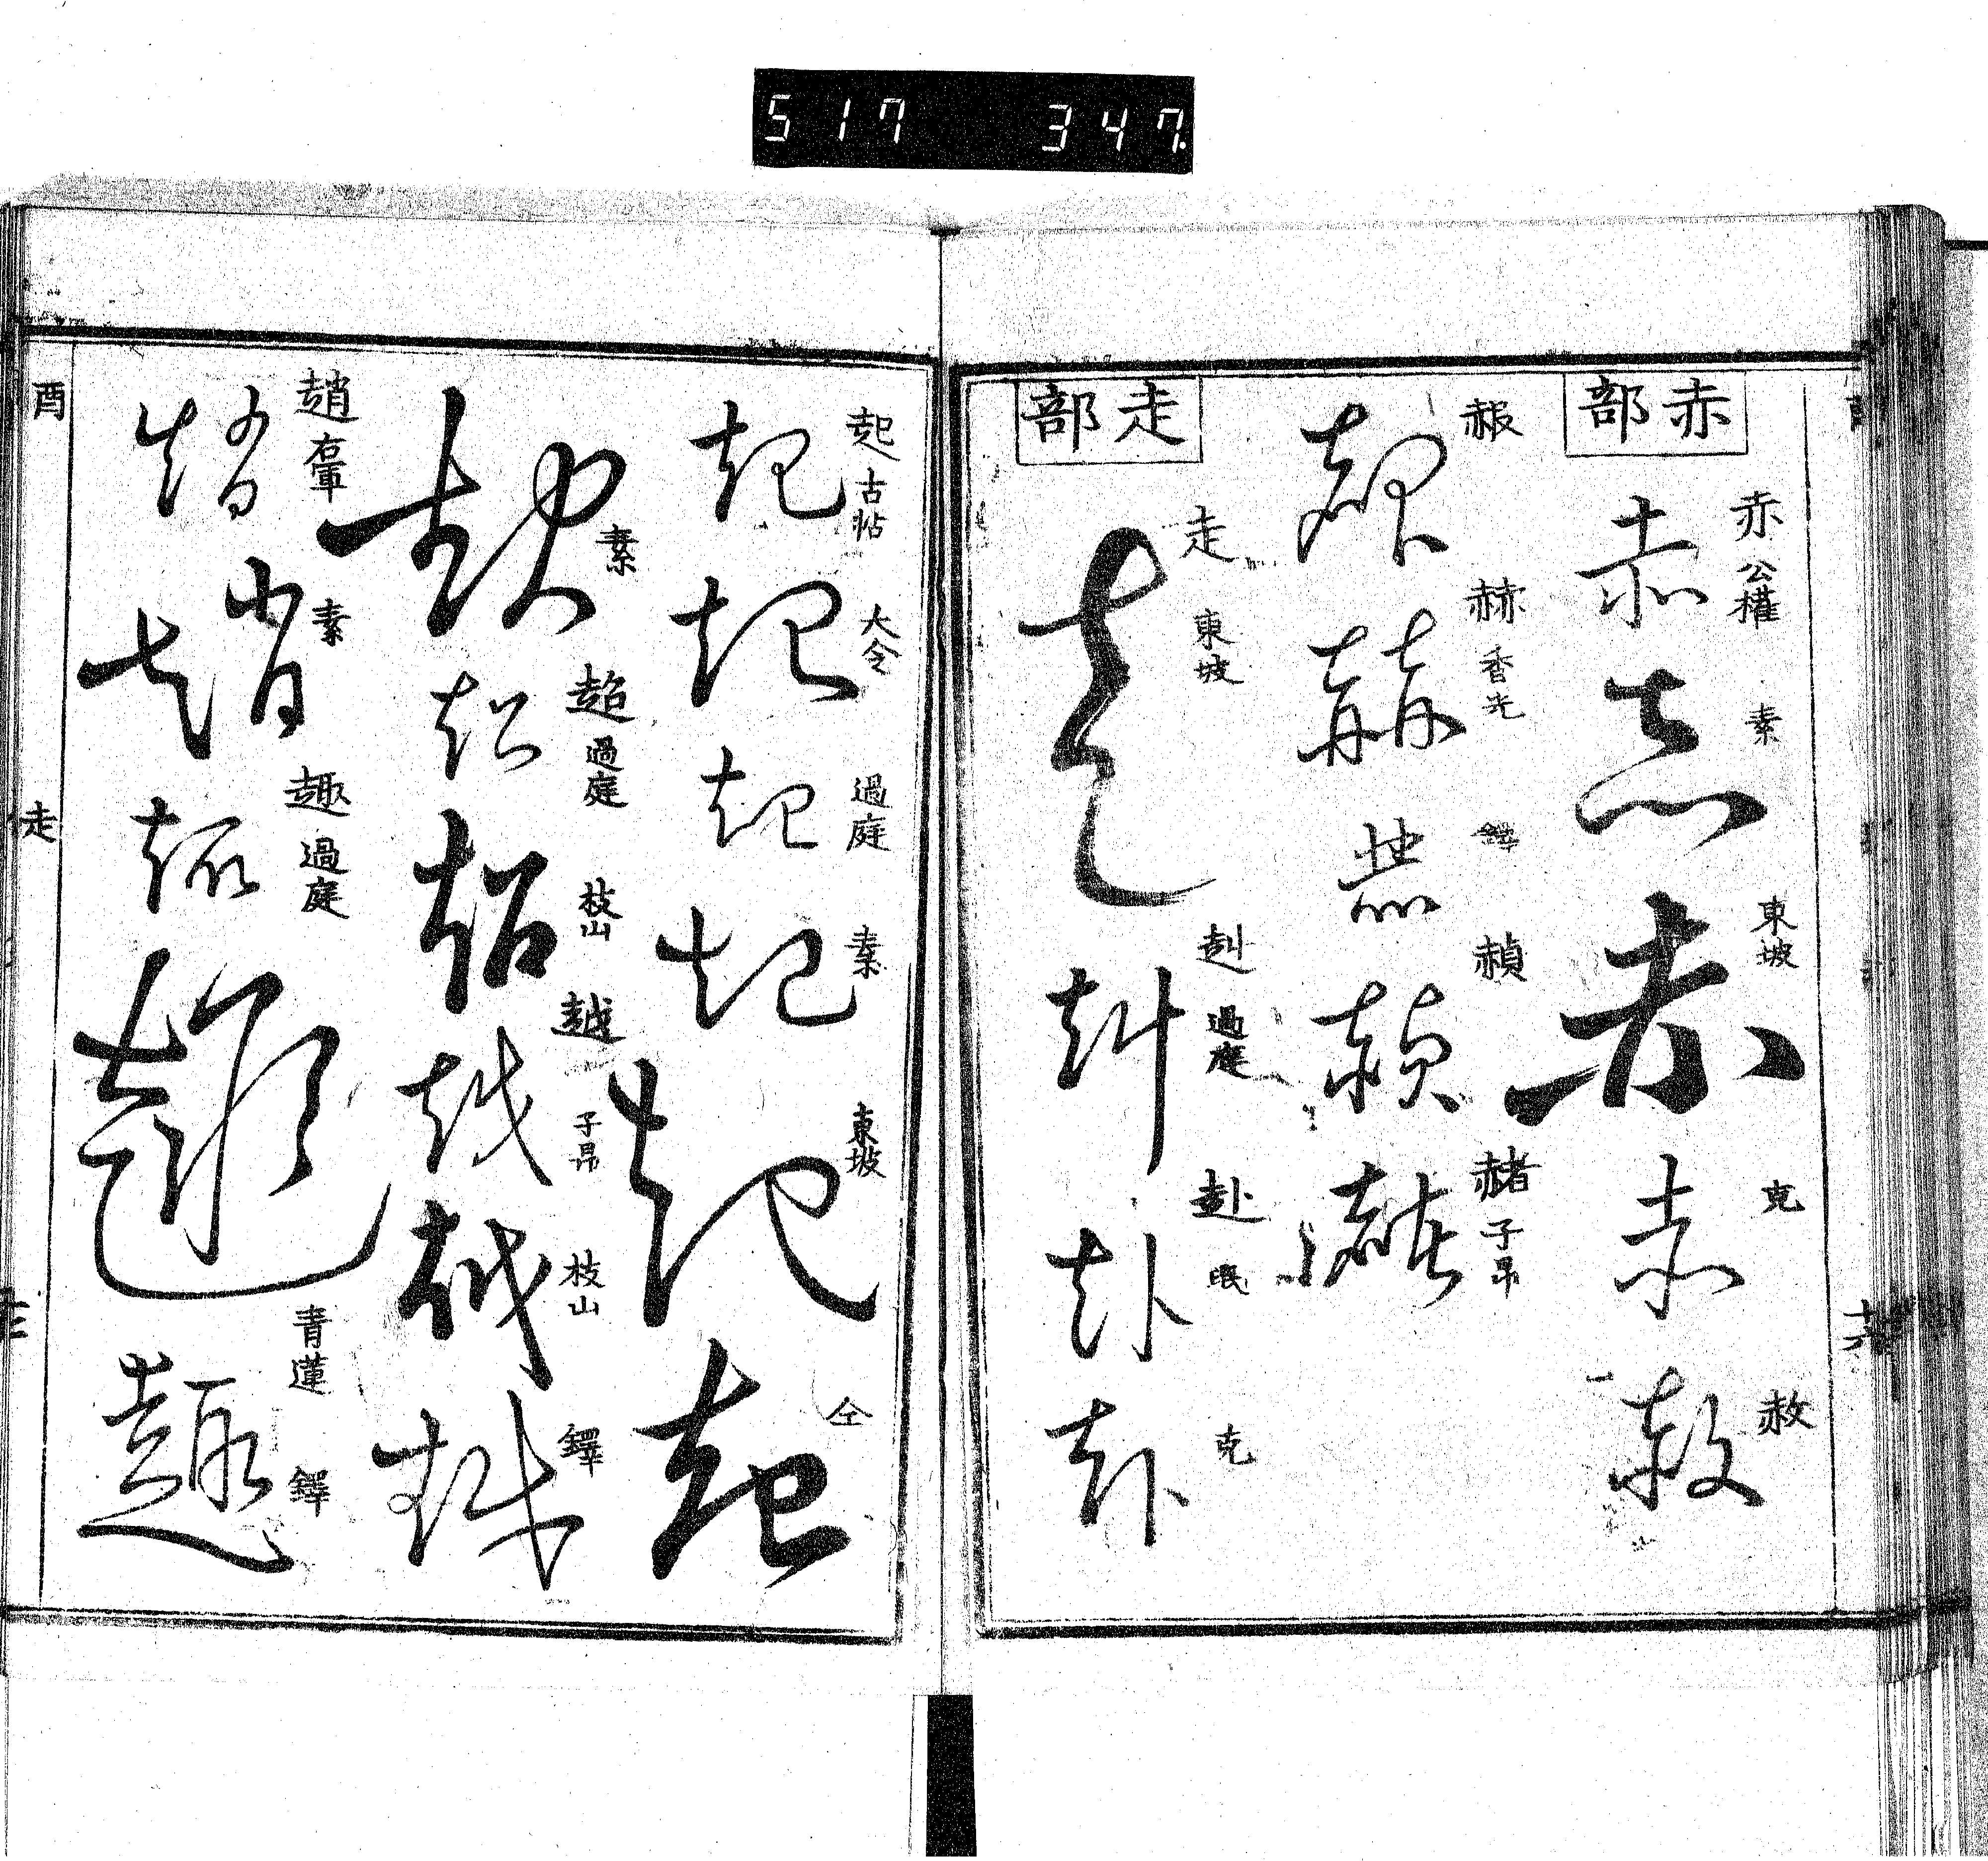 517 347
赤部
赤 公權
素
東坡
克
赦
赧
赫 香光
鐸
赬
赭 子昂
走部
走 東坡
赳 過庭
赴 珉
克
起 古帖
大令
過庭
素
東坡
仝
素
超 過庭
枝山
越 子昂
枝山
鐸
趙
素
趣 過庭
青蓮
鐸
酉
走